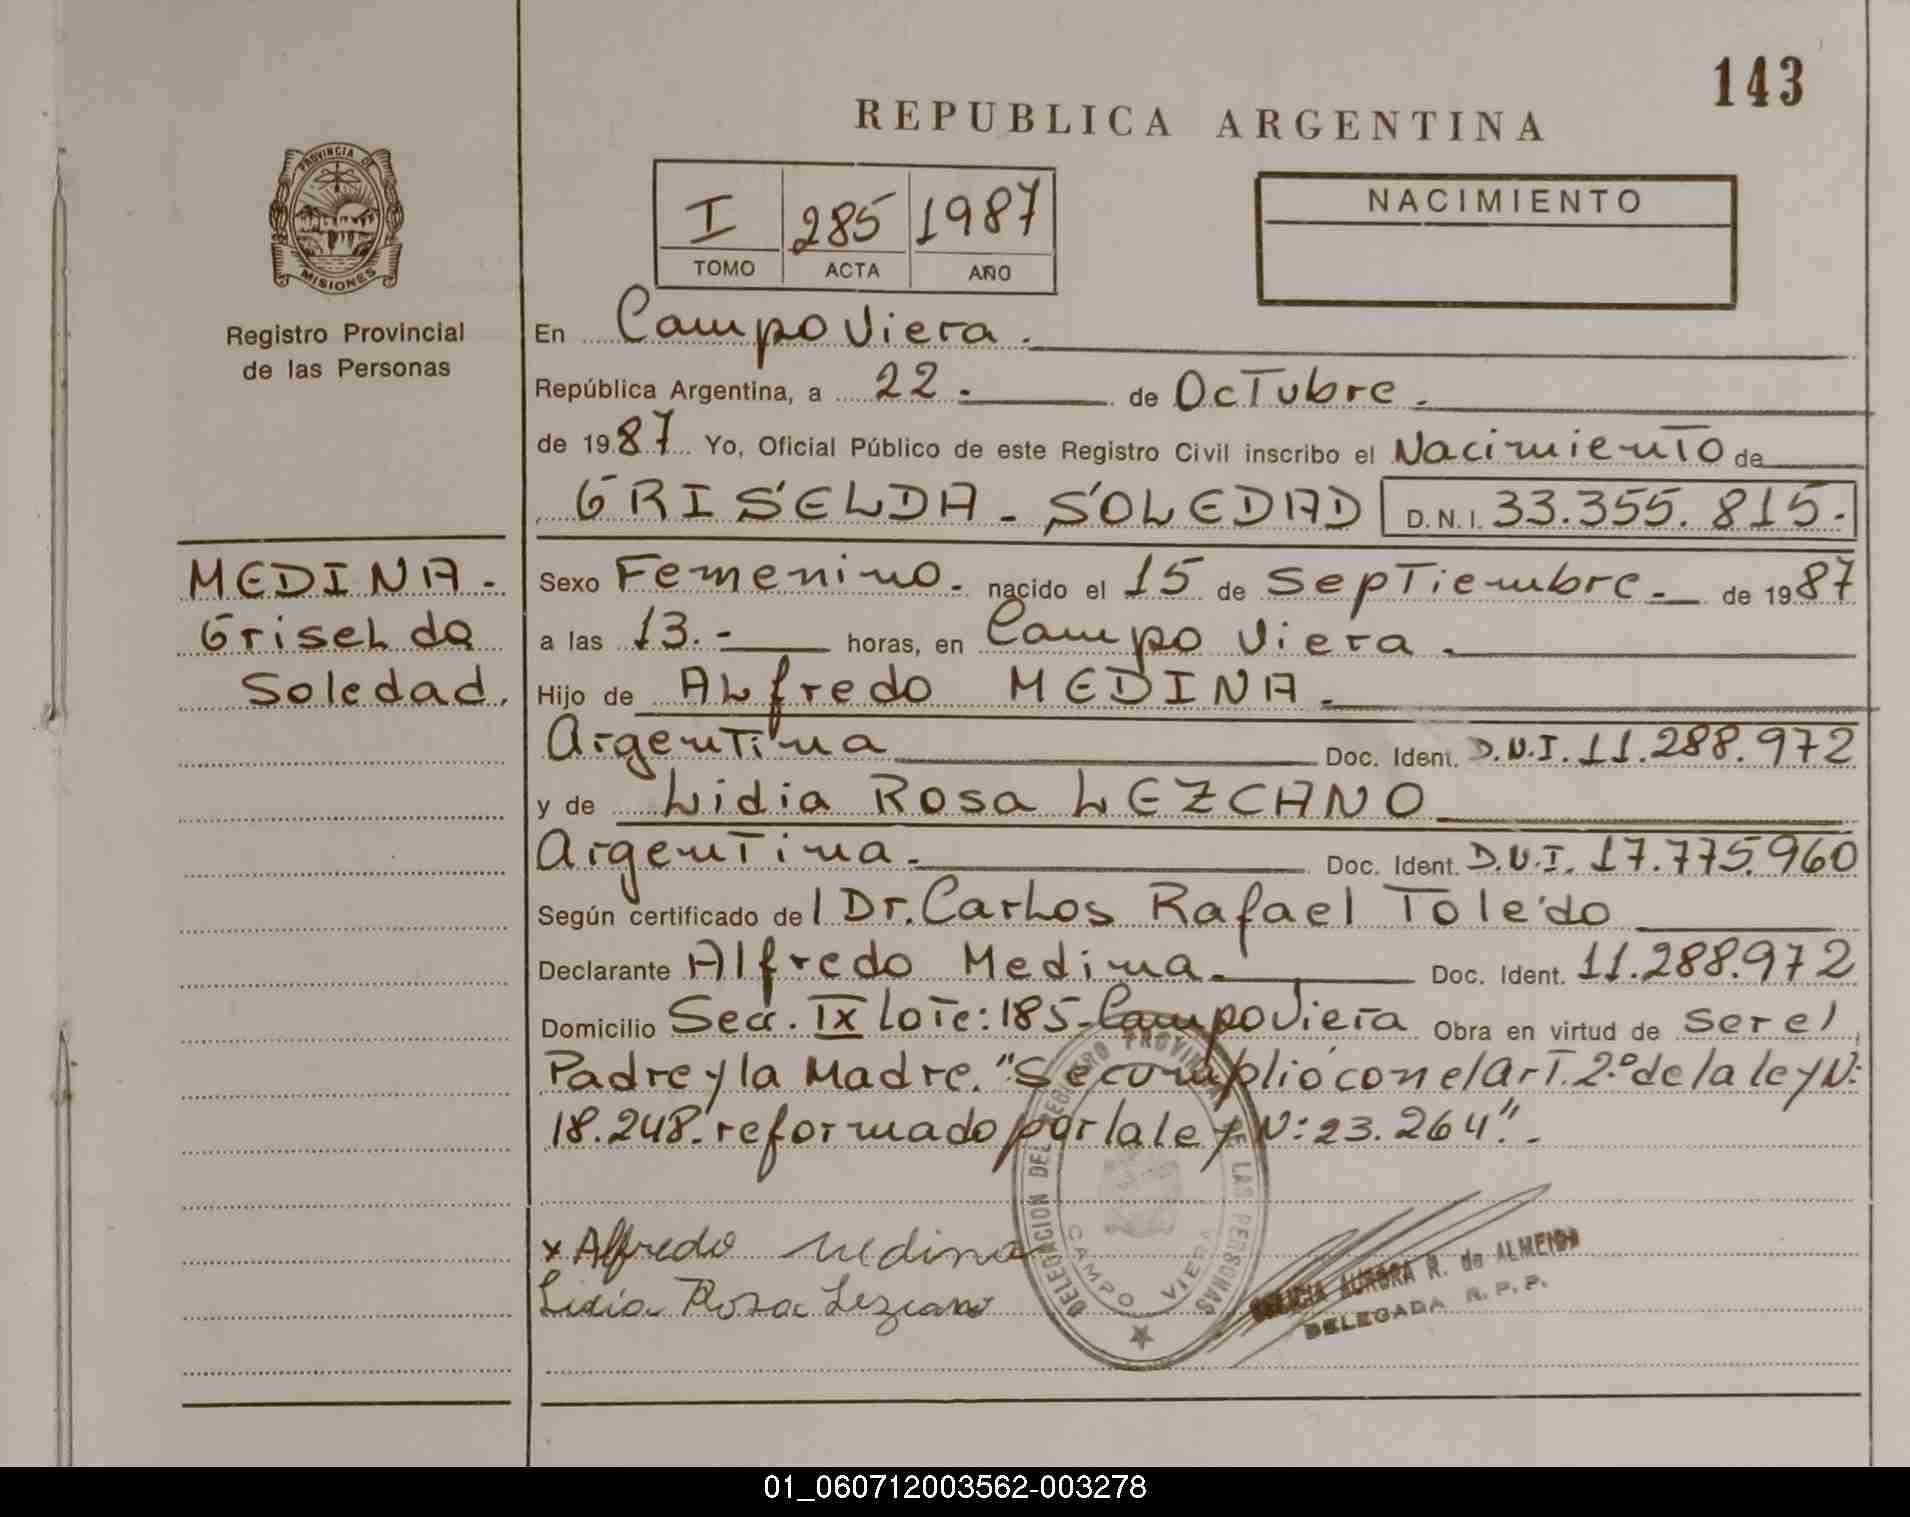 143
REPUBLICA ARGENTINA
PROVINCIA DE
MISIONES
Registro Provincial
de las Personas
I 285 1987
TOMO ACTA AÑO
NACIMIENTO
En Campo Viera.
República Argentina, a 22.- de Octubre.
de 1987 Yo, Oficial Público de este Registro Civil inscribo el Nacimiento de
GRISELDA - SOLEDAD D.N.I. 33.355.815.-
MEDINA.-
Griselda
Soledad.
Sexo Femenino.- nacido el 15 de Septiembre.- de 1987
a las 13.- horas, en Campo Viera.
Hijo de Alfredo MEDINA.-
Argentina Doc. Ident. D.N.I. 11.288.972
y de Lidia Rosa LEZCANO
Argentina.- Doc. Ident. D.N.I. 17.775.960
Según certificado del Dr. Carlos Rafael Toledo
Declarante Alfredo Medina.- Doc. Ident. 11.288.972
Domicilio Secc. IX Lote: 185-Campo Viera Obra en virtud de ser el
Padre y la Madre. "Se cumplió con el art. 2º de la ley N:
18.248. reformado por la ley N: 23.264".-
x Alfredo Medina
Lidia Rosa Lezcano
DELEGACION DEL REGISTRO PROVINCIAL DE LAS PERSONAS
CAMPO VIERA
AURORA R. de ALMEIDA
DELEGADA R.P.P.
01_060712003562-003278